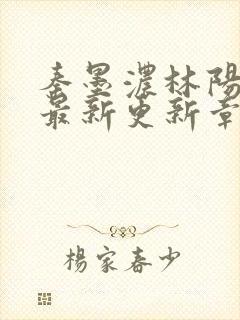 秦墨濃林陽
最新更新章
楊家春少